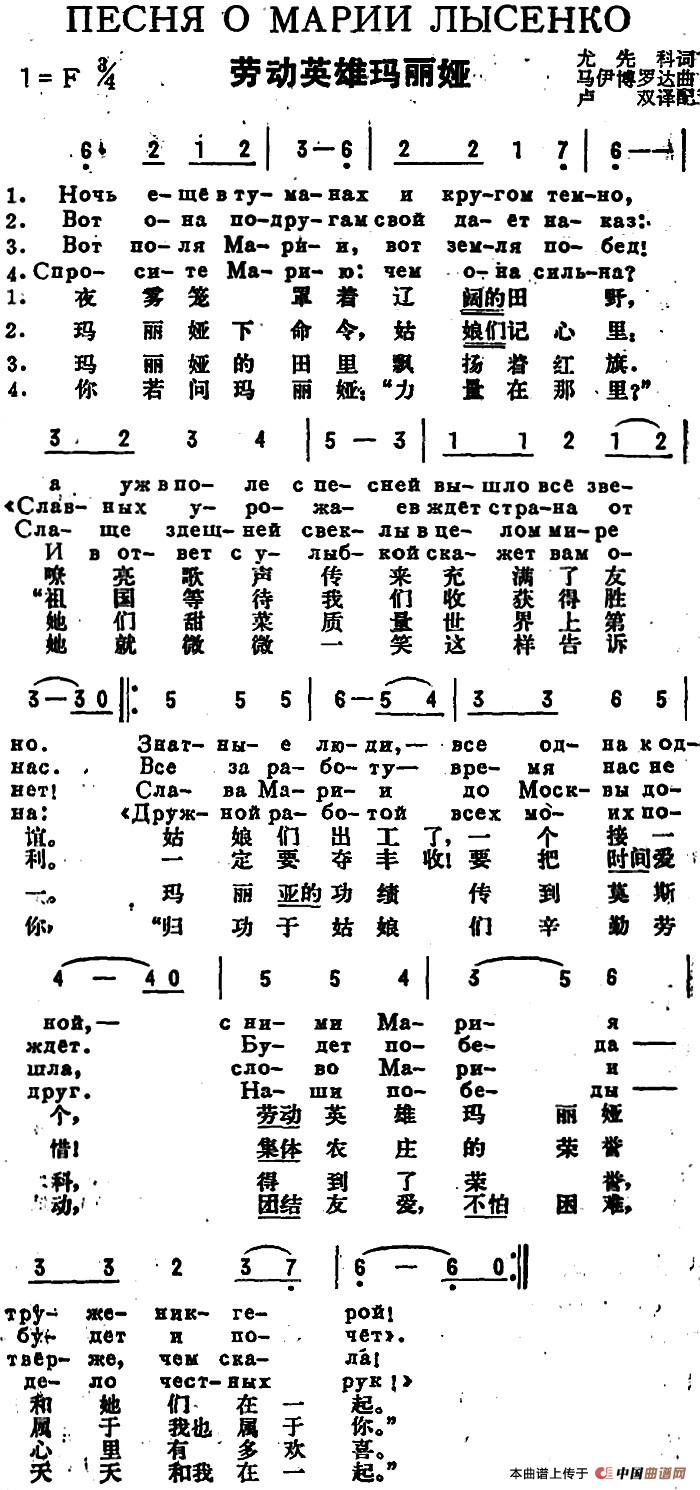 ПЕСНЯ О МАРИИ ЛЫСЕНКО
劳动英雄玛丽娅
1=F 3/4
尤先科词
马伊博罗达曲
卢双译配
6· 2 1 2 | 3—6 | 2 2 1 7 | 6—→|
1. Ночь е-щё в ту-ма-нах и кру-гом тем-но,
2. Вот о-на по-дру-гам свой да-ёт на-каз:
3. Вот по-ля Ма-ри-и, вот зем-ля по-бед!
4. Спро-си-те Ма-рию: чем о-на силь-на?
1. 夜雾笼罩着辽阔的田野,
2. 玛丽娅下命令,姑娘们记心里:
3. 玛丽娅的田里飘扬着红旗.
4. 你若问玛丽娅:“力量在那里?”
3 2 3 4 | 5—3 | 1 1 2 1 2 |
а уж в по-ле с пе-сней вы-шло всё зве-
«Слав-ных у-ро-жа-ев ждёт стра-на от
Сла-ще здеш-ней свек-лы в це-лом ми-ре
И в от-вет с у-лыб-кой ска-жет вам о-
嘹亮歌声传来充满了友
“祖国等待我们收获得胜
她们甜菜质量世界上第
她就微微一笑这样告诉
3—3 0 ‖: 5 5 5 5 | 6—5 4 | 3 3 6 5 |
но. Знат-ны-е лю-ди,— все од-на к од-
нас. Все за ра-бо-ту— вре-мя нас не
нет! Сла-ва Ма-ри-и до Москвы до-
на: «Друж-ной ра-бо-той всех мо-их по-
谊。姑娘们出工了,一个接一
利。一定要夺丰收!要把时间爱
一。玛丽亚的功绩传到莫斯
你,“归功于姑娘们辛勤劳
4 — 4 0 | 5 5 4 | 3 5 6 |
ной,— с ни-ми Ма-ри-я
ждёт. Бу-дет по-бе-да—
шла, сло-во Ма-ри-и
друг. На-ши по-бе-ды—
个,劳动英雄玛丽娅
惜!集体农庄的荣誉
科,得到了荣誉,
动,团结友爱,不怕困难,
3 3 2 3 7 | 6 — 6 0 :‖
тру-же-ник-ге-рой!
бу-дет и по-чёт».
твёр-же, чем ска-ла!
де-ло чест-ных рук!»
和她们在一起。
属于我也属于你。”
心里有多欢喜。
天天和我在一起。”
本曲谱上传于 中国曲谱网